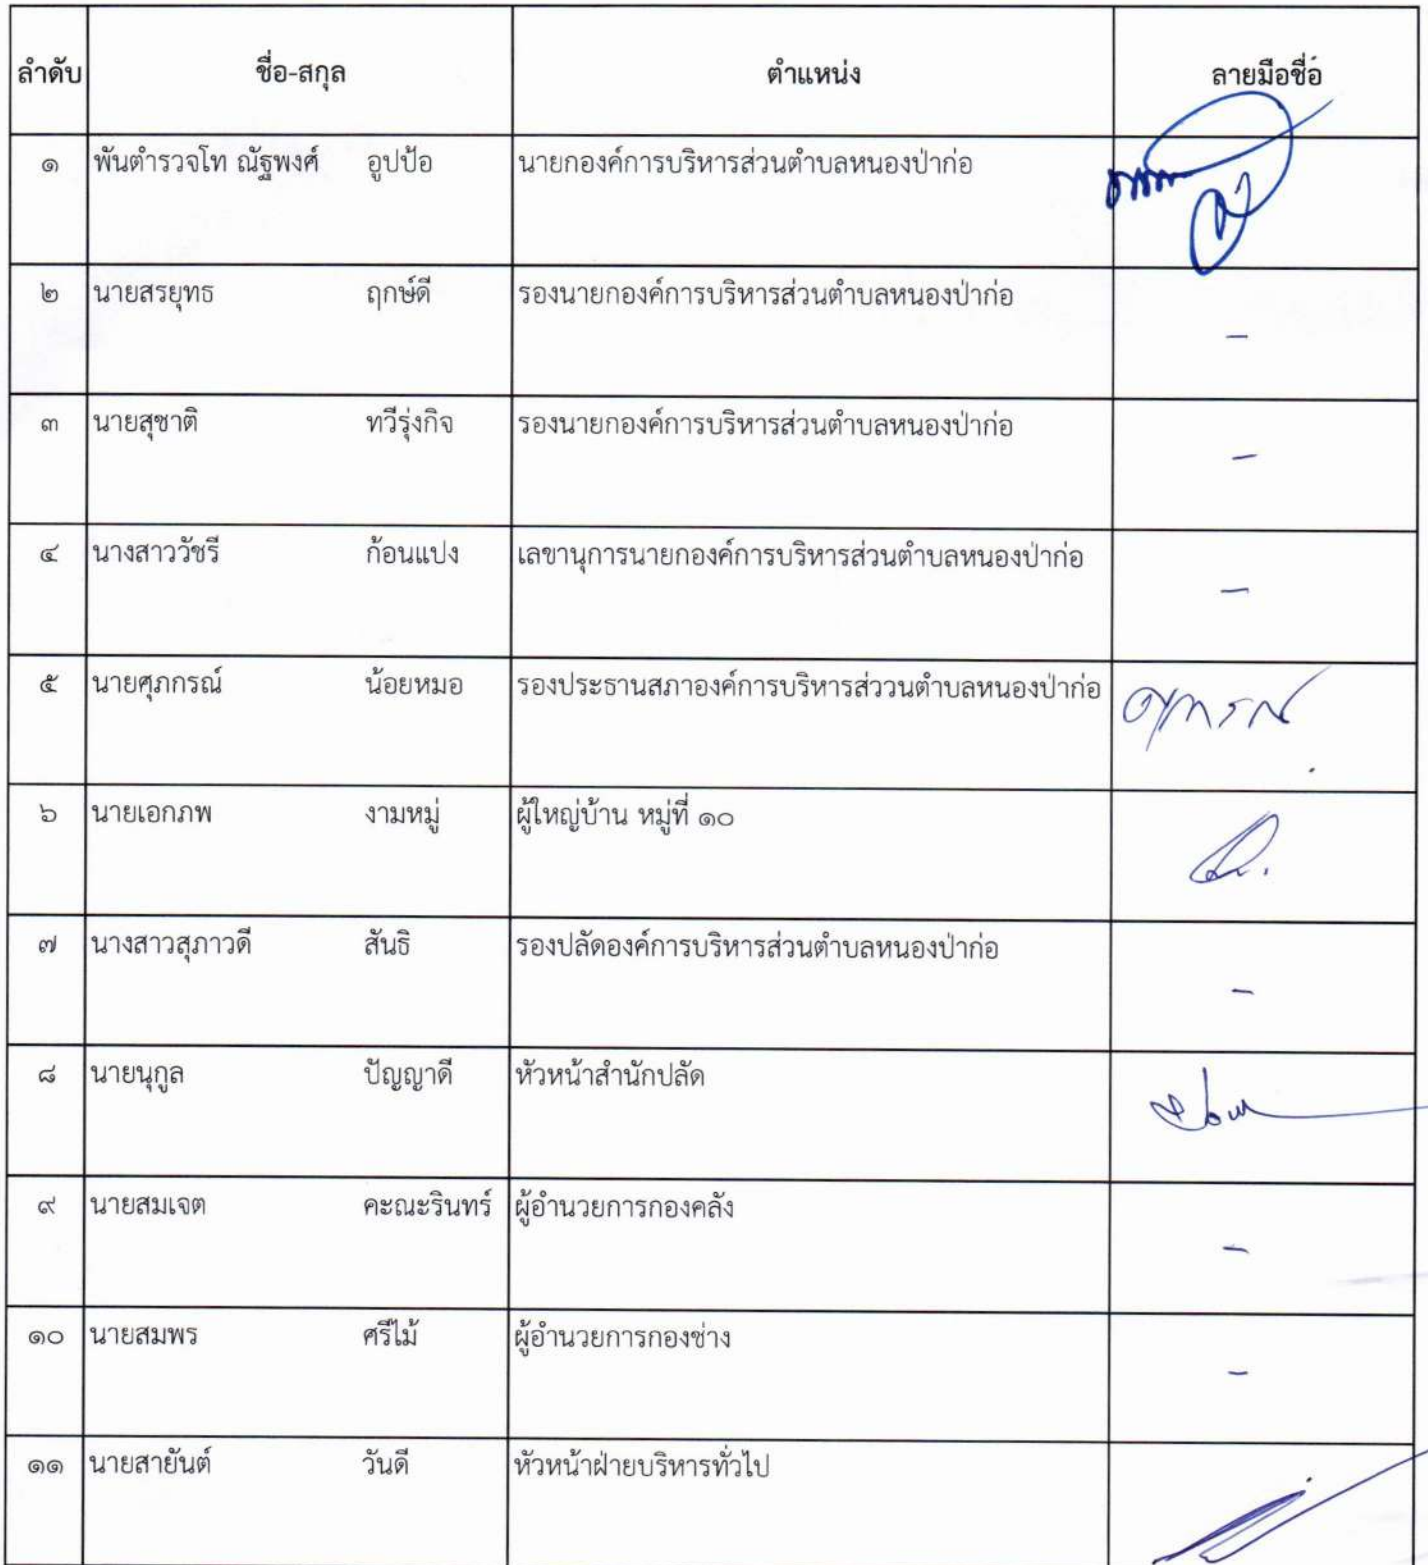 ลำดับ ชื่อ-สกุล ตำแหน่ง ลายมือชื่อ
๑ พันตำรวจโท ณัฐพงศ์ อูปป้อ นายกองค์การบริหารส่วนตำบลหนองป่าก่อ
๒ นายสรยุทธ ฤกษ์ดี รองนายกองค์การบริหารส่วนตำบลหนองป่าก่อ -
๓ นายสุชาติ ทวีรุ่งกิจ รองนายกองค์การบริหารส่วนตำบลหนองป่าก่อ -
๔ นางสาววัชรี ก้อนแปง เลขานุการนายกองค์การบริหารส่วนตำบลหนองป่าก่อ -
๕ นายศุภกรณ์ น้อยหมอ รองประธานสภาองค์การบริหารส่ววนตำบลหนองป่าก่อ
๖ นายเอกภพ งามหมู่ ผู้ใหญ่บ้าน หมู่ที่ ๑๐
๗ นางสาวสุภาวดี สันธิ รองปลัดองค์การบริหารส่วนตำบลหนองป่าก่อ -
๘ นายนุกูล ปัญญาดี หัวหน้าสำนักปลัด
๙ นายสมเจต คะณะรินทร์ ผู้อำนวยการกองคลัง -
๑๐ นายสมพร ศรีไม้ ผู้อำนวยการกองช่าง -
๑๑ นายสายันต์ วันดี หัวหน้าฝ่ายบริหารทั่วไป